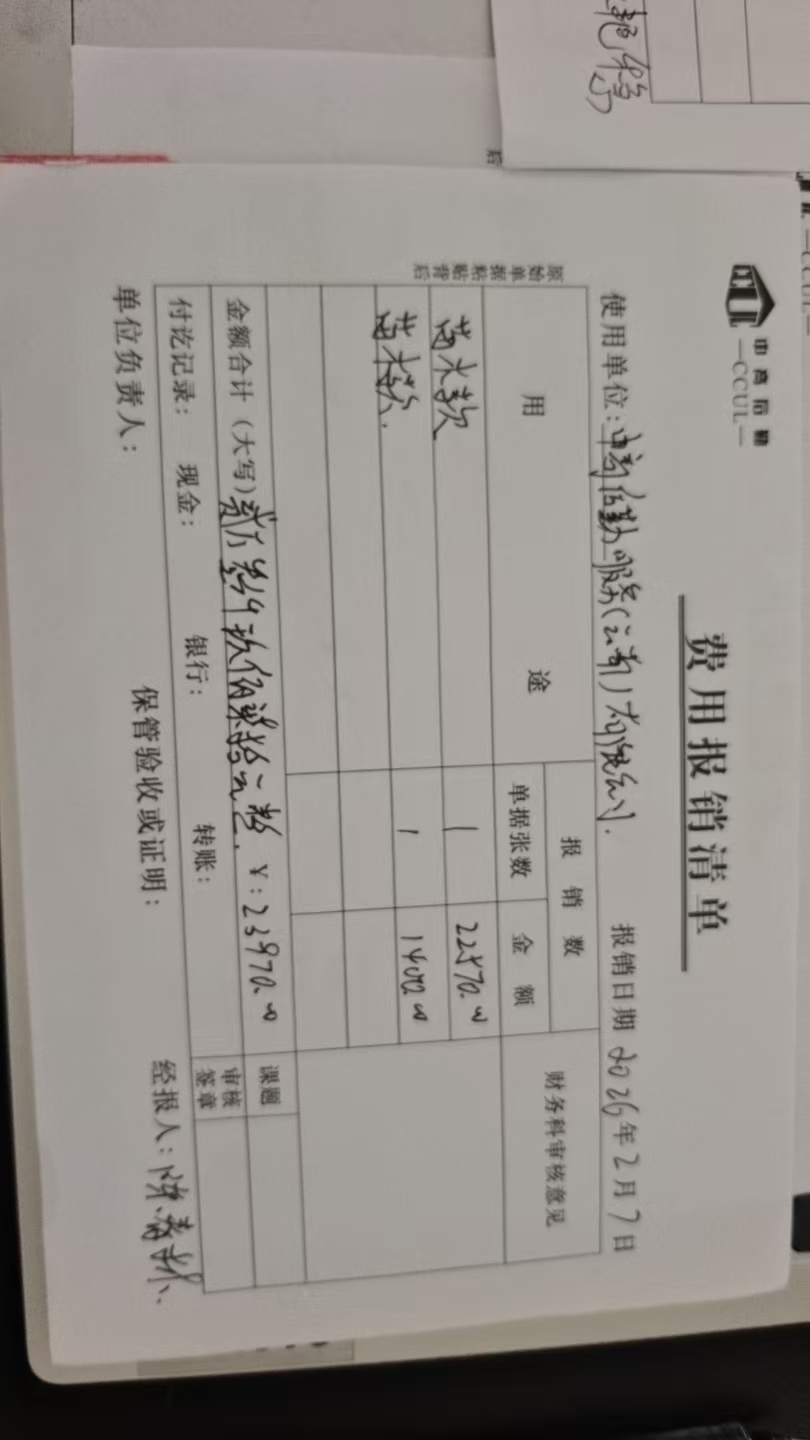 中高后勤
—CCUL—
费用报销清单
使用单位:中高后勤服务(云南)有限公司. 报销日期 2026年2月7日
原始单据粘贴背后
用 途 报 销 数 财务科审核意见
单据张数 金 额
苗木款 1 22570.00
苗木款. 1 1400.00
金额合计(大写)贰万叁仟玖佰柒拾元整. ¥:23970.00 课题
付讫记录: 现金: 银行: 转账: 审核签章
单位负责人: 保管验收或证明: 经报人:
后